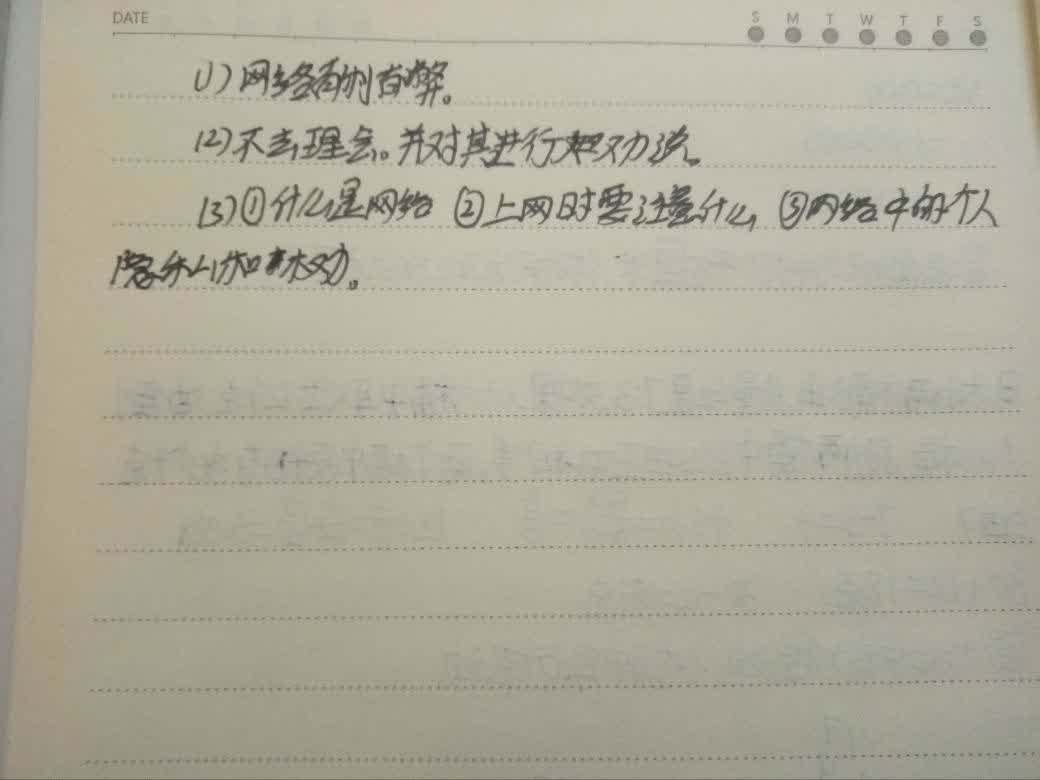 DATE
S M T W T F S
(1) 网络有利有弊。
(2) 不去理会。并对其进行规劝说。
(3) ① 什么是网络 ② 上网时要注意什么 ③ 网络中的个人
隐私和权利。